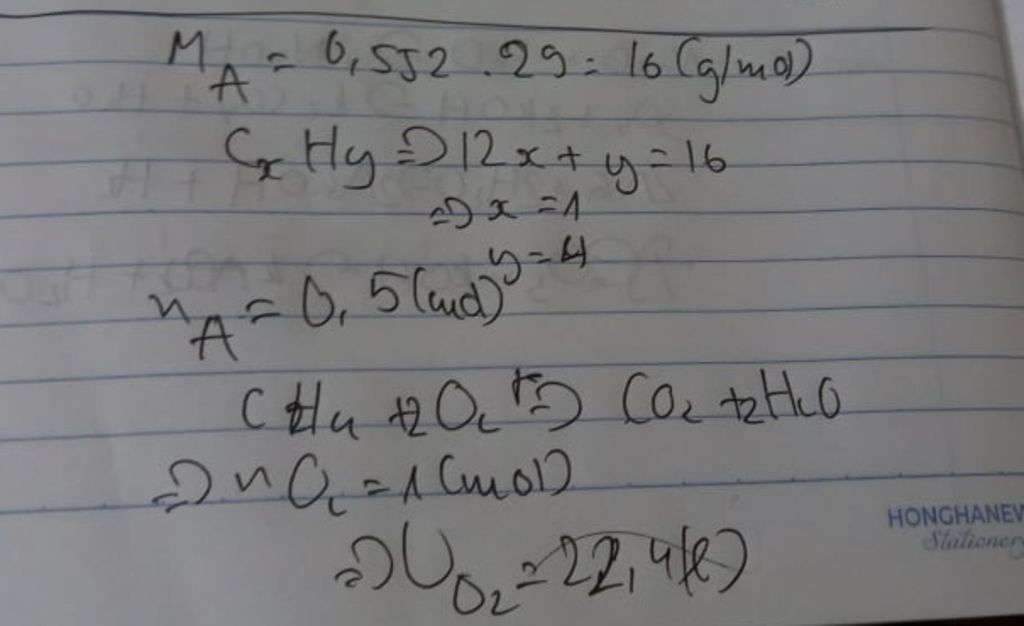 M_A = 0,552 . 29 = 16 (g/mol)
CxHy => 12x + y = 16
=> x = 1
y = 4
n_A = 0,5 (mol)
CH4 + 2O2 t=> CO2 + 2H2O
=> nO2 = 1 (mol)
=> V_O2 = 22,4 (l)
HONGHANEW
Stationery